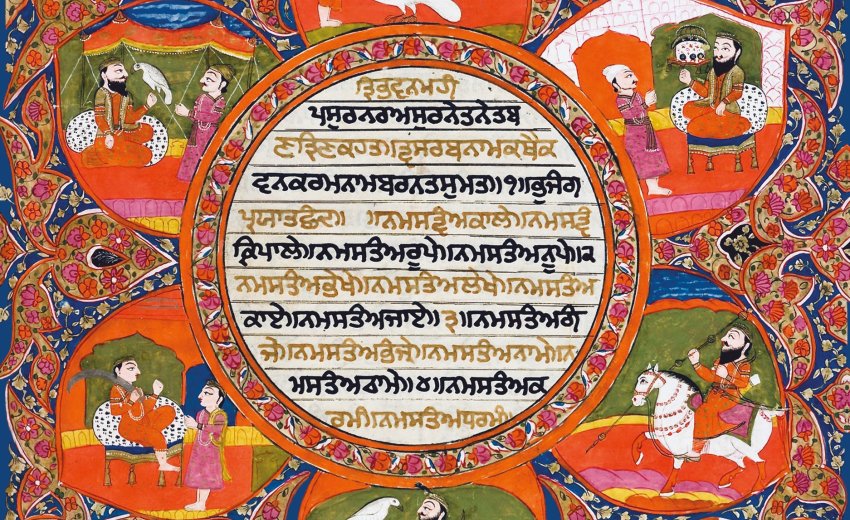 ਤ੍ਰਿਭਵਨਮਹੀ
ਪਸੁਰਨਰਅਸੁਰਨੇਤਨੇਤਬ
ਣਤ੍ਰਿਣਕਹਤ॥ਤ੍ਵਸਰਬਨਾਮਕਥੈਕ
ਵਨਕਰਮਨਾਮਬਰਨਤਸੁਮਤ॥੧॥ਭੁਜੰਗ
ਪ੍ਰਯਾਤਛੰਦ॥ ॥ਨਮਸਤ੍ਵੰਅਕਾਲੇ॥ਨਮਸਤ੍ਵੰ
ਕ੍ਰਿਪਾਲੇ॥ਨਮਸਤੰਅਰੂਪੇ॥ਨਮਸਤੰਅਨੂਪੇ॥੨
ਨਮਸਤੰਅਭੇਖੇ॥ਨਮਸਤੰਅਲੇਖੇ॥ਨਮਸਤੰਅ
ਕਾਏ॥ਨਮਸਤੰਅਜਾਏ॥੩॥ਨਮਸਤੰਅਗੰ
ਜੇ॥ਨਮਸਤੰਅਭੰਜੇ॥ਨਮਸਤੰਅਨਾਮੇ॥ਨ
ਮਸਤੰਅਠਾਮੇ॥੪॥ਨਮਸਤੰਅਕ
ਰਮੰ॥ਨਮਸਤੰਅਧਰਮੰ॥